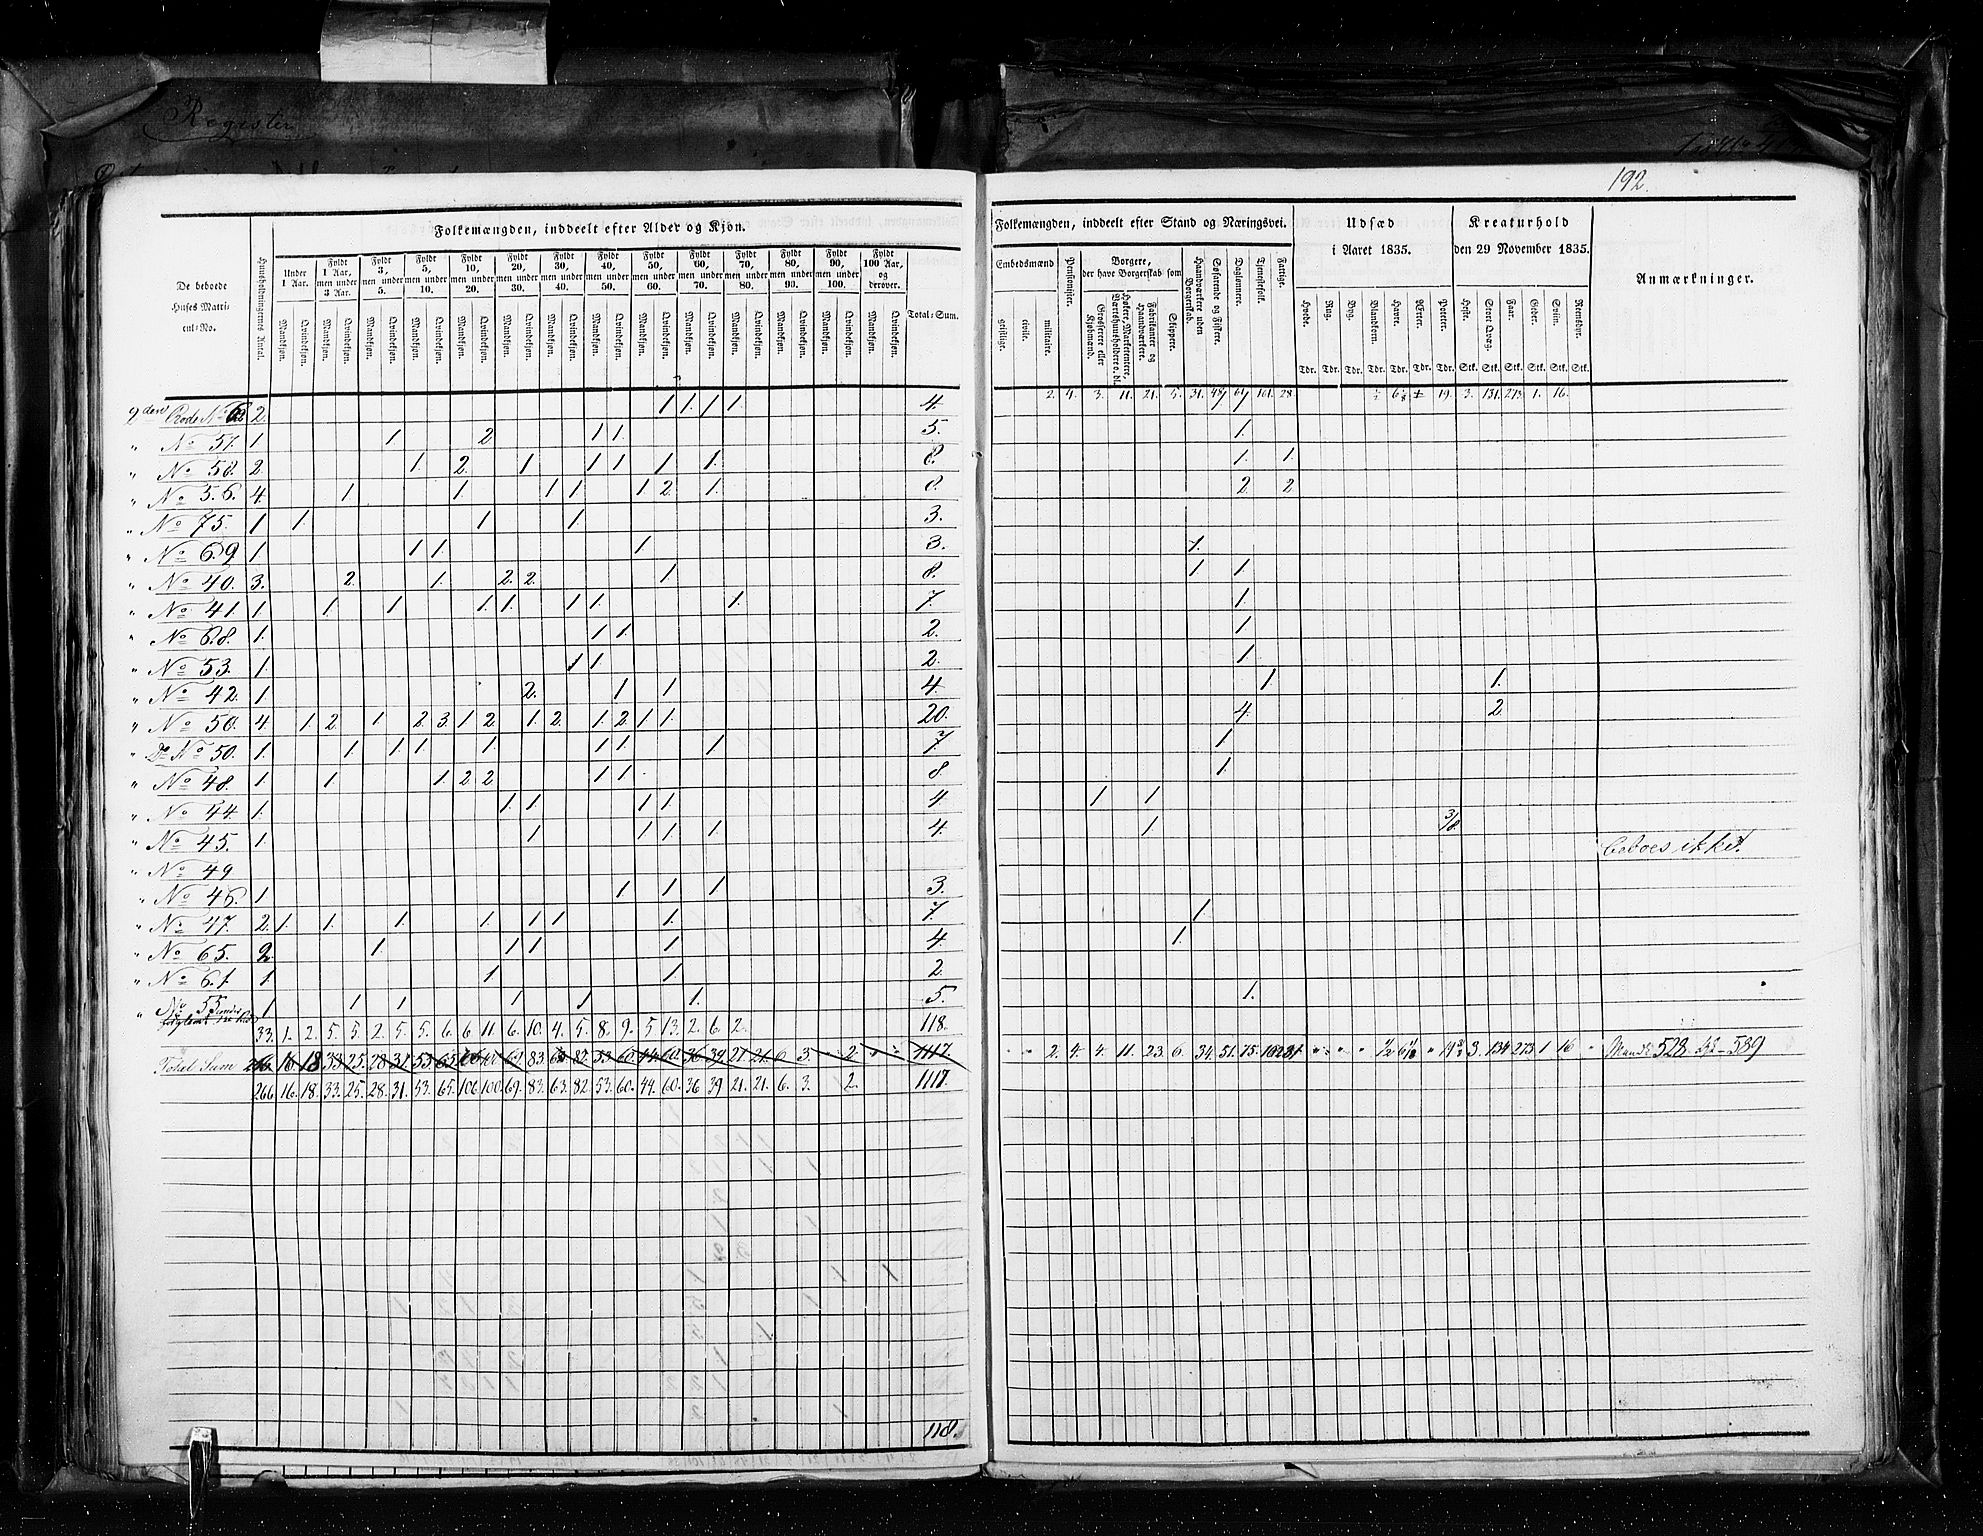 192.
Register
Folkemængden, inddeelt efter Alder og Kjøn.
De beboede Huses Matricul-No.
Huusholdningernes Antal.
Under 1 Aar.
Fyldt 1 Aar, men under 3 Aar.
Fyldt 3, men under 5.
Fyldt 5, men under 10.
Fyldt 10, men under 20.
Fyldt 20, men under 30.
Fyldt 30, men under 40.
Fyldt 40, men under 50.
Fyldt 50, men under 60.
Fyldt 60, men under 70.
Fyldt 70, men under 80.
Fyldt 80, men under 90.
Fyldt 90, men under 100.
Fyldt 100 Aar, og derover.
Mandkjøn. Qvindekjøn. Mandkjøn. Qvindekjøn. Mandkjøn. Qvindekjøn. Mandkjøn. Qvindekjøn. Mandkjøn. Qvindekjøn. Mandkjøn. Qvindekjøn. Mandkjøn. Qvindekjøn. Mandkjøn. Qvindekjøn. Mandkjøn. Qvindekjøn. Mandkjøn. Qvindekjøn. Mandkjøn. Qvindekjøn. Mandkjøn. Qvindekjøn. Mandkjøn. Qvindekjøn. Mandkjøn. Qvindekjøn.
Total-Sum.
2den Rode No 2. 1 1. 1 1. 4.
" No 57. 1. 1 2 1 1. 5.
" No 58. 2. 1. 2. 1 1 1 1 1. 8.
" No 56. 4. 1 1. 1 1 1 2. 1. 8.
" No 75. 1 1. 1 1. 3.
" No 69 1 1 1. 1. 3.
" No 40. 3. 2. 1. 2. 2. 1 8.
" No 41. 1 1. 1 1 1. 1 1. 1. 7.
" No 68. 1. 1 1. 2.
" No 53. 1. 1 1. 2.
" No 42. 1 2. 1 1. 4.
" No 50. 4. 1. 2. 1. 2. 3. 1. 2. 1. 2. 1. 2. 1 1. 20.
" Do No 50. 1. 1. 1. 1. 1. 1 1. 1 7
" No 48. 1. 1 1. 2 2 1 1. 8.
" No 44 1. 1. 1. 1 1. 4
" No 45. 1. 1 1 1. 1. 4.
" No 49
" No 46. 1 1 1 1 3.
" No 47. 2. 1. 1. 1. 1. 1 1 1. 7.
" No 65. 2 1. 1 1 1 4
" No 61. 1. 1 1. 2
" No 55 1 1 1. 1 1 1. 5.
33. 1. 2. 5. 5. 2. 5. 5. 6. 6 11. 6. 10. 4. 5. 8. 9. 5 13. 2. 6. 2. 118.
Total Sum 266 16 18 33 25. 28 31. 53. 65. 106 100 69 83. 63 82. 53 60. 44 60. 36 39. 21. 21. 6. 3. 2. 1117.
266. 16. 18. 33. 25. 28. 31. 53. 65. 106. 100. 69. 83. 63. 82. 53. 60. 44. 60. 36 39. 21. 21. 6. 3. 2. 1117.
118.
Folkemængden, inddeelt efter Stand og Næringsvei.
Embedsmænd
geistlige.
civile.
militaire.
Pensionister.
Borgere, der have Borgerskab som
Grosserere eller Kjøbmænd.
Høkere, Marketentere, Værtshuusholdere o. dl.
Fabrikanter og Haandværkere.
Skippere.
Haandværkere uden Borgerskab.
Søfarende og Fiskere.
Daglønnere.
Tjenestefolk.
Fattige.
Udsæd i Aaret 1835.
Hvede. Rug. Byg. Blandkorn. Havre. Ærter. Poteter.
Tdr. Tdr. Tdr. Tdr. Tdr. Tdr. Tdr.
Kreaturhold den 29 November 1835.
Heste. Stort Qvæg. Faar. Geder. Sviin. Reensdyr.
Stk. Stk. Stk. Stk. Stk. Stk.
Anmærkninger.
2. 4. 3. 11. 21. 5. 31. 49. 61 161. 28. 19. 3. 131. 273. 1. 16.
1.
1. 1.
2. 2
1.
1 1.
1.
1.
1
1. 1.
4. 2.
1
1.
1 1
1 3/8.
beboes ikke.
1
1.
1.
" " 2. 4. 4. 11. 23. 6. 34. 51. 75. 162 31. " " " 1/2 " 19 3/8 3. 134 273 1 16 " Mandk 528. Qk – 589